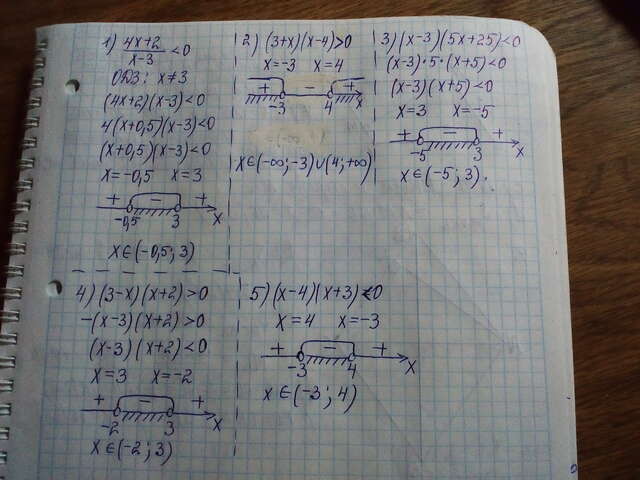 1) (4x+2)/(x-3) < 0
ОДЗ: x ≠ 3
(4x+2)(x-3)<0
4(x+0,5)(x-3)<0
(x+0,5)(x-3)<0
x=-0,5 x=3
+ - +
-0,5 3 x
x∈(-0,5; 3)
2) (3+x)(x-4)>0
x=-3 x=4
+ - +
-3 4 x
x∈(-∞; -3)∪(4; +∞)
3) (x-3)(5x+25)<0
(x-3)·5·(x+5)<0
(x-3)(x+5)<0
x=3 x=-5
+ - +
-5 3 x
x∈(-5; 3).
4) (3-x)(x+2)>0
-(x-3)(x+2)>0
(x-3)(x+2)<0
x=3 x=-2
+ - +
-2 3 x
x∈(-2; 3)
5) (x-4)(x+3)<0
x=4 x=-3
+ - +
-3 4 x
x∈(-3; 4)